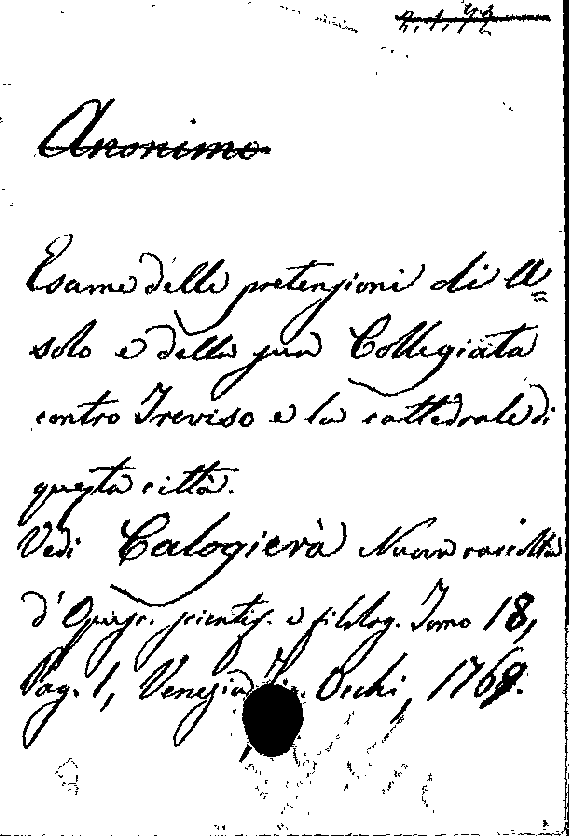 Anonimo
Esame delle pretensioni di A=
solo e della sua Collegiata
contro Treviso e la cattedrale di
questa città.
Vedi Calogierà Nuova raccolta
d'Opusc. scientif. e filolog. Tomo 18,
Pag. 1, Venezia Occhi, 1769.